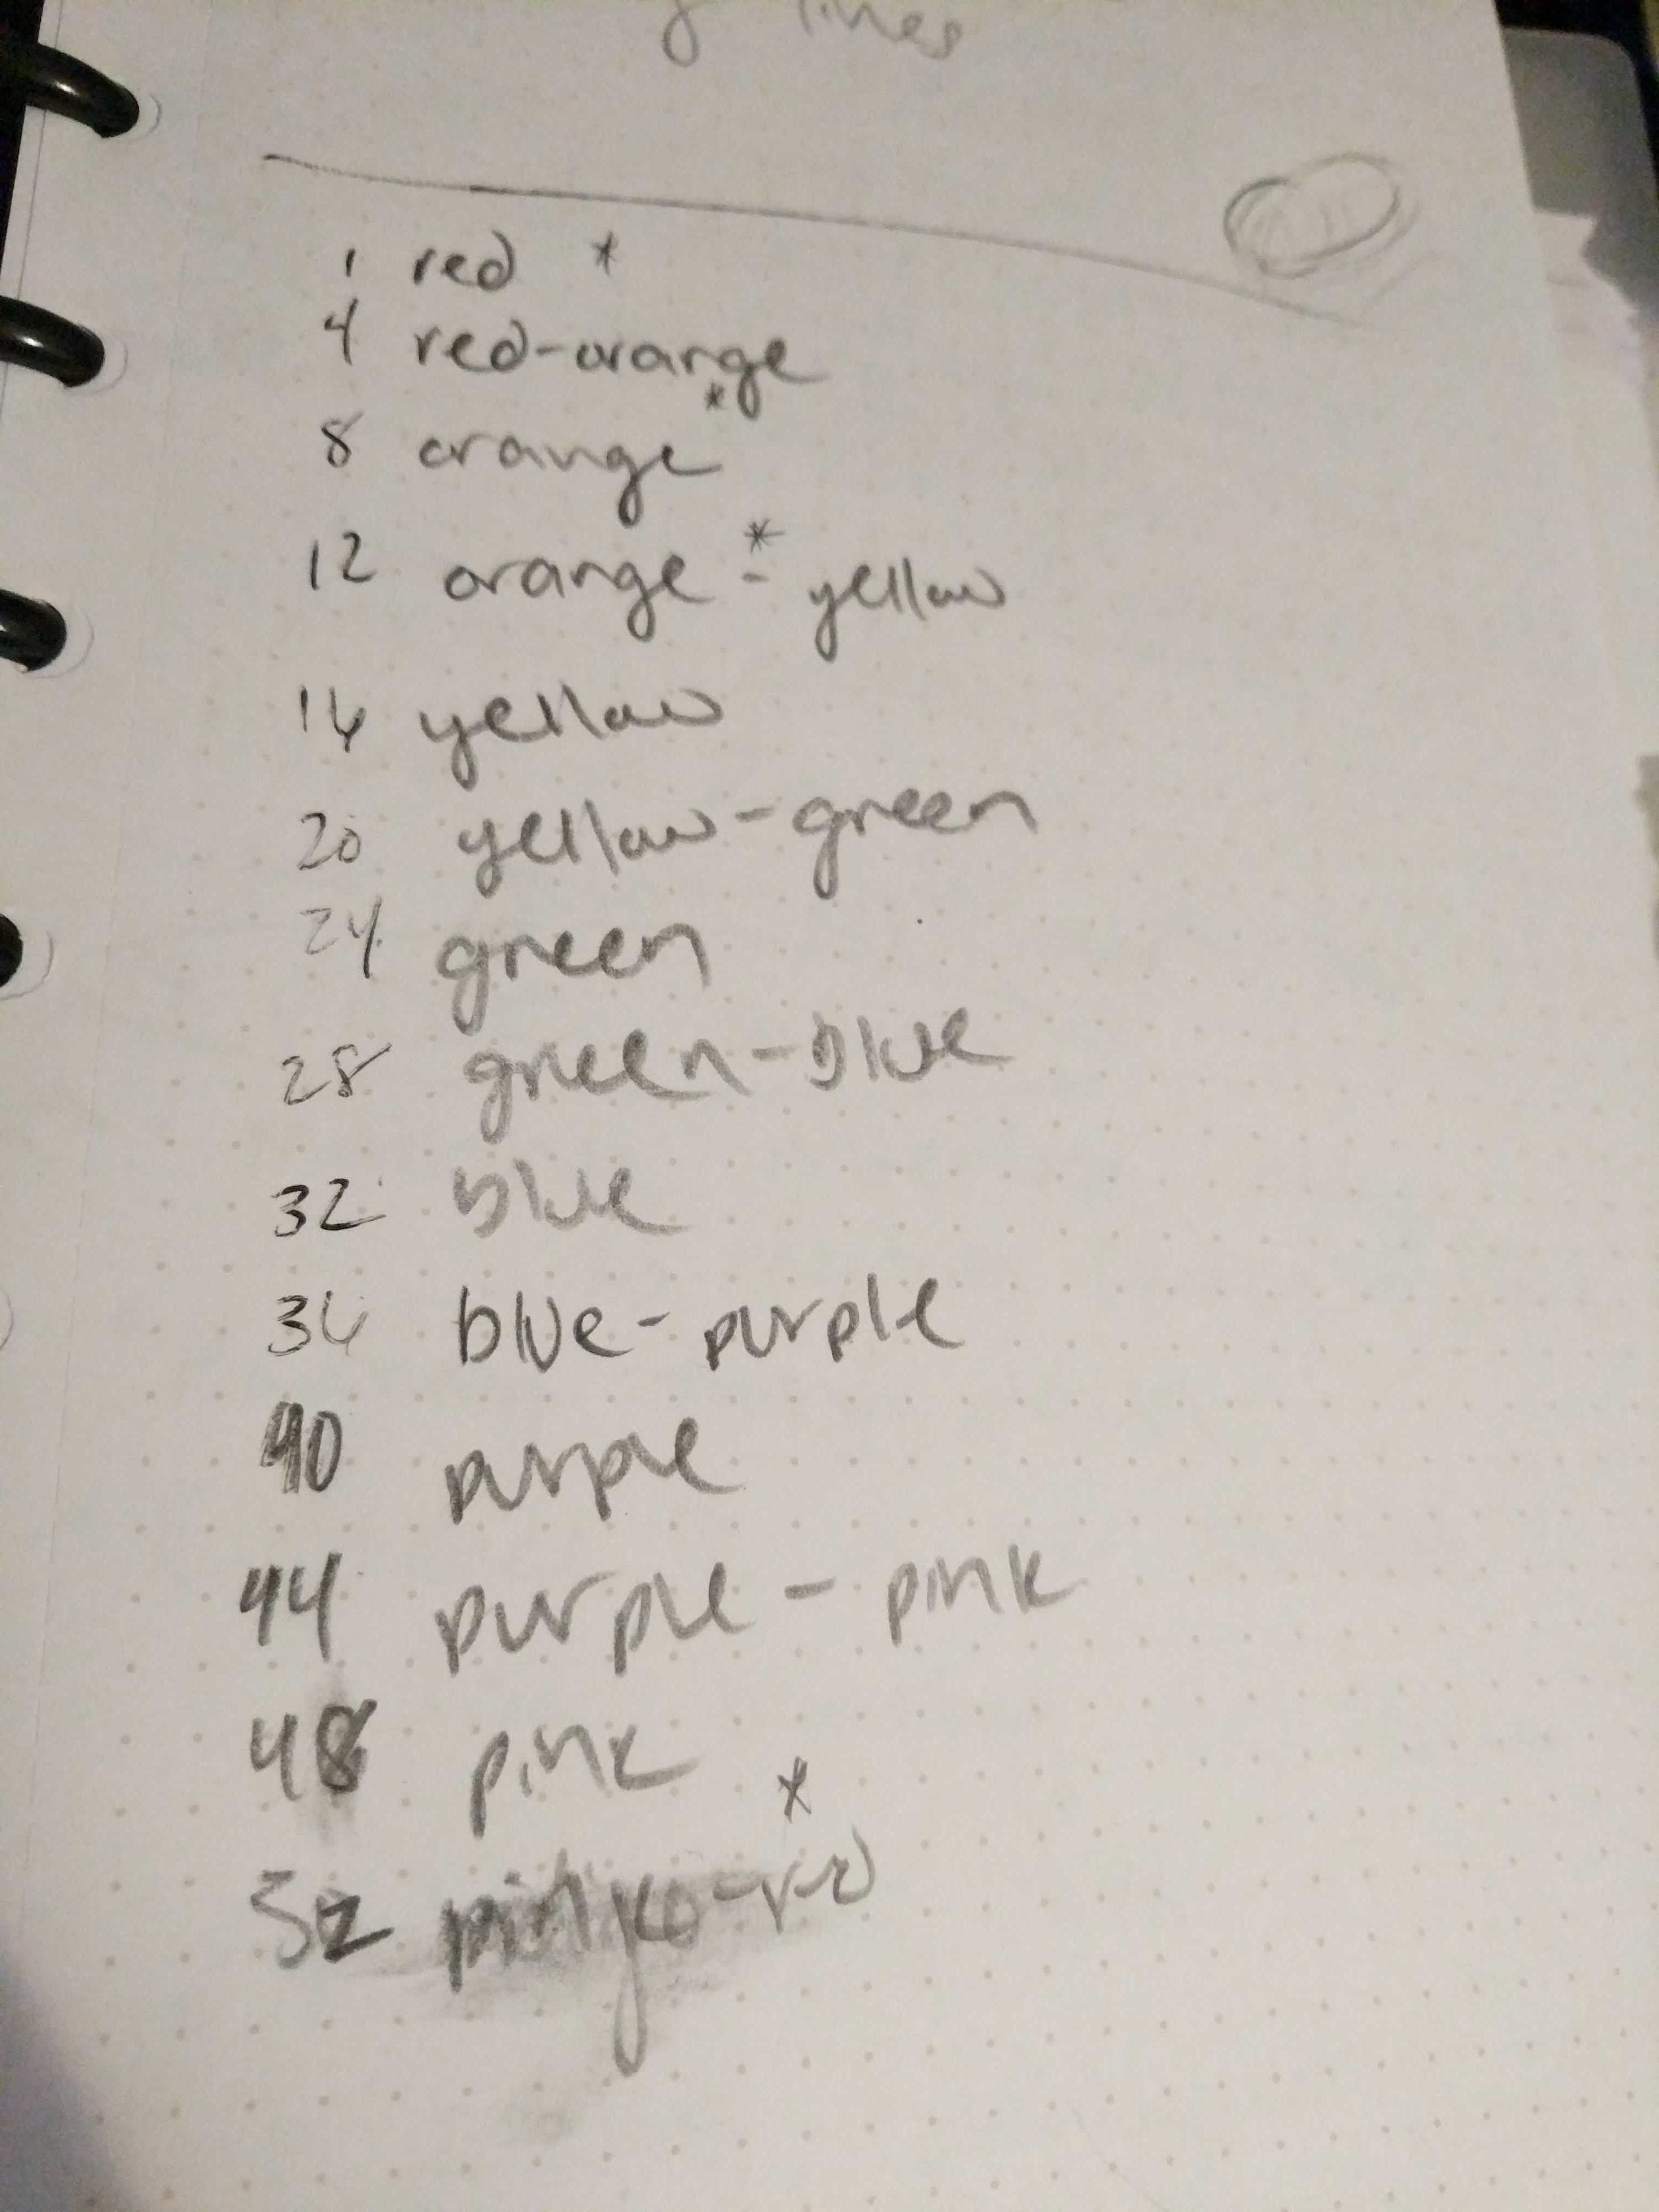 lines
1 red *
4 red-orange
8 orange *
12 orange *- yellow
16 yellow
20 yellow-green
24 green
28 green-blue
32 blue
36 blue-purple
40 purple
44 purple - pink
48 pink
52 -red *